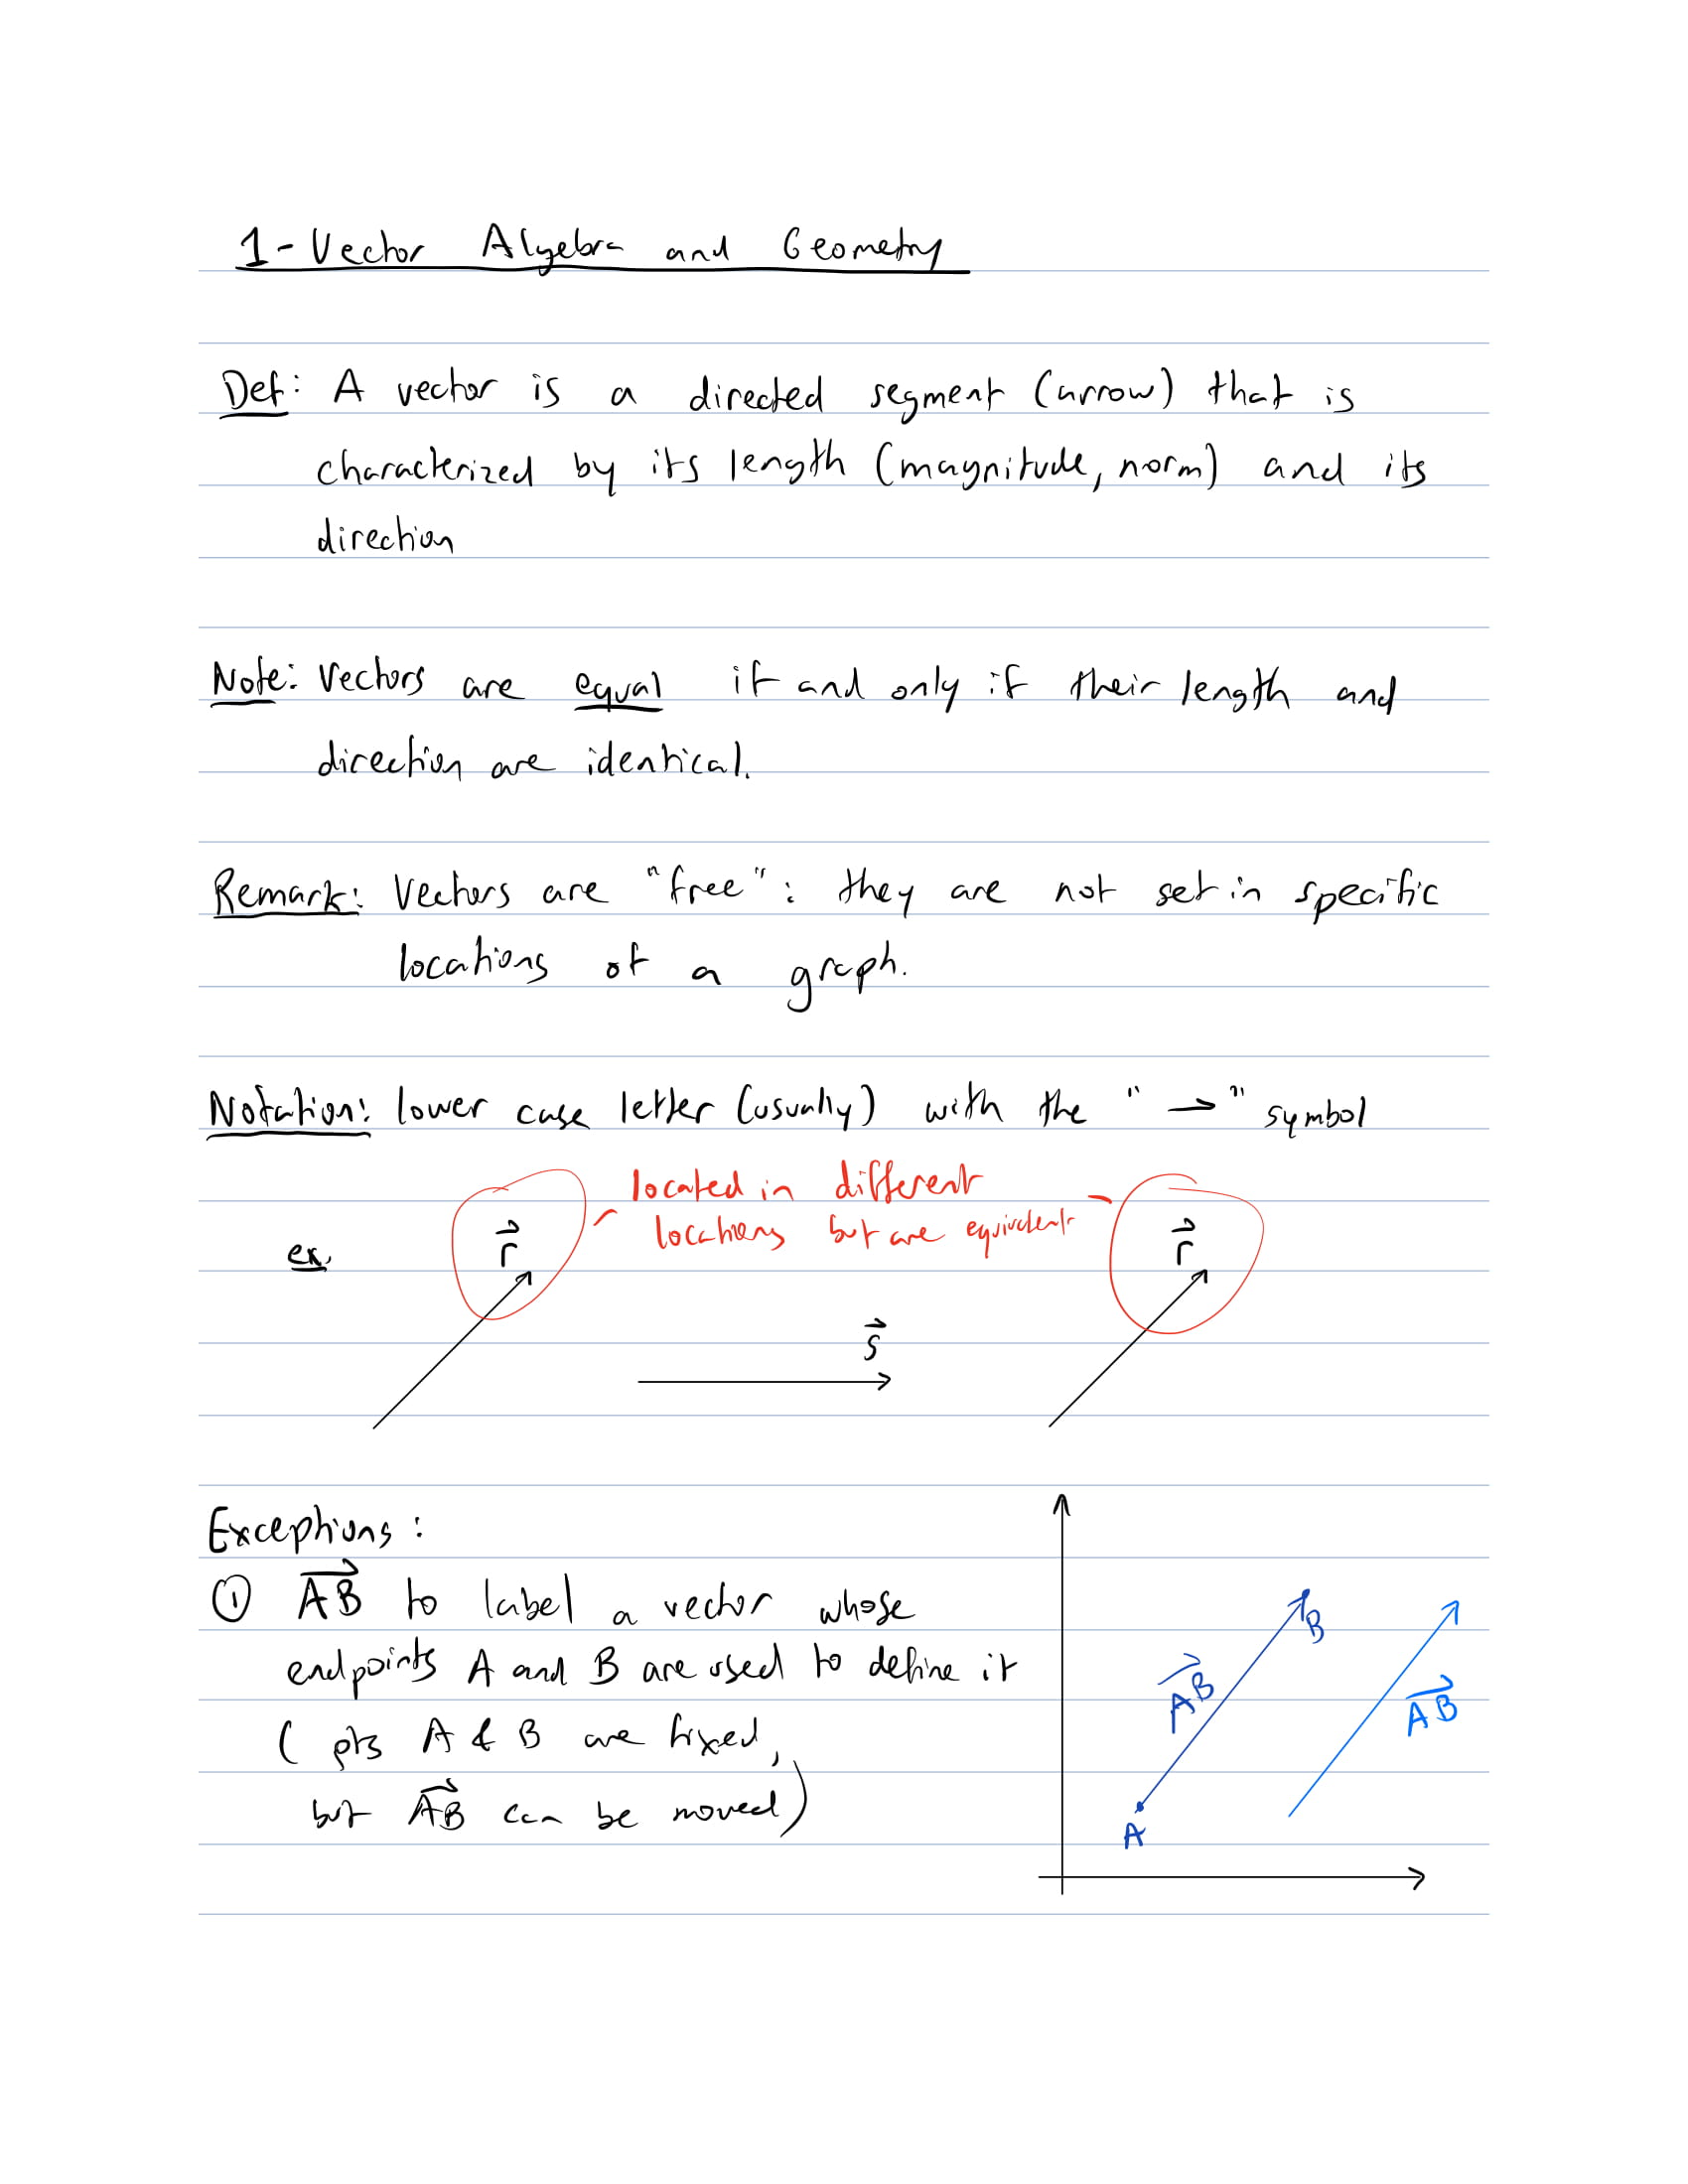 1 - Vector Algebra and Geometry
Def: A vector is a directed segment (arrow) that is
characterized by its length (magnitude, norm) and its
direction
Note: Vectors are equal if and only if their length and
direction are identical.
Remark: Vectors are "free": they are not set in specific
locations of a graph.
Notation: lower case letter (usually) with the "→" symbol
located in different
locations but are equivalent
ex.
r⃗
r⃗
s⃗
Exceptions:
① A⃗B⃗ to label a vector whose
endpoints A and B are used to define it
(pts A & B are fixed,
but A⃗B⃗ can be moved)
B
A⃗B⃗
A⃗B⃗
A